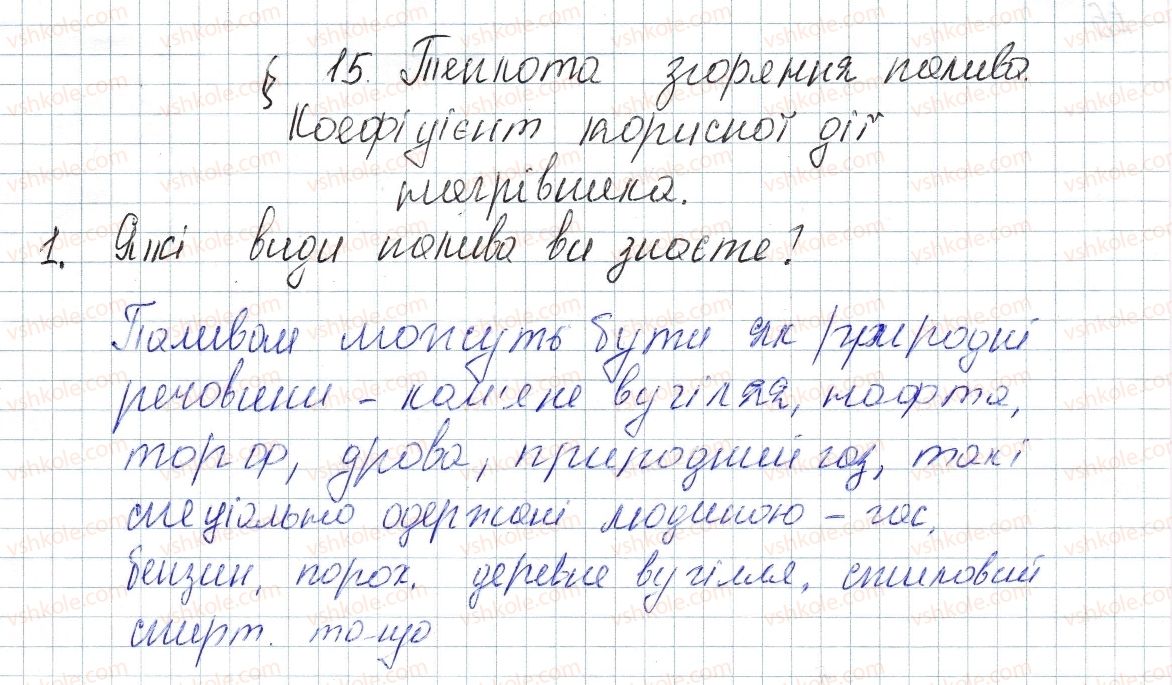 § 15. Теплота згоряння палива.
Коефіцієнт корисної дії
нагрівника.
1. Які види палива ви знаєте?
Паливом можуть бути як природні
речовини – кам'яне вугілля, нафта,
торф, дрова, природний газ, такі
спеціально одержані людиною – гас,
бензин, порох, деревне вугілля, етиловий
спирт. то-що